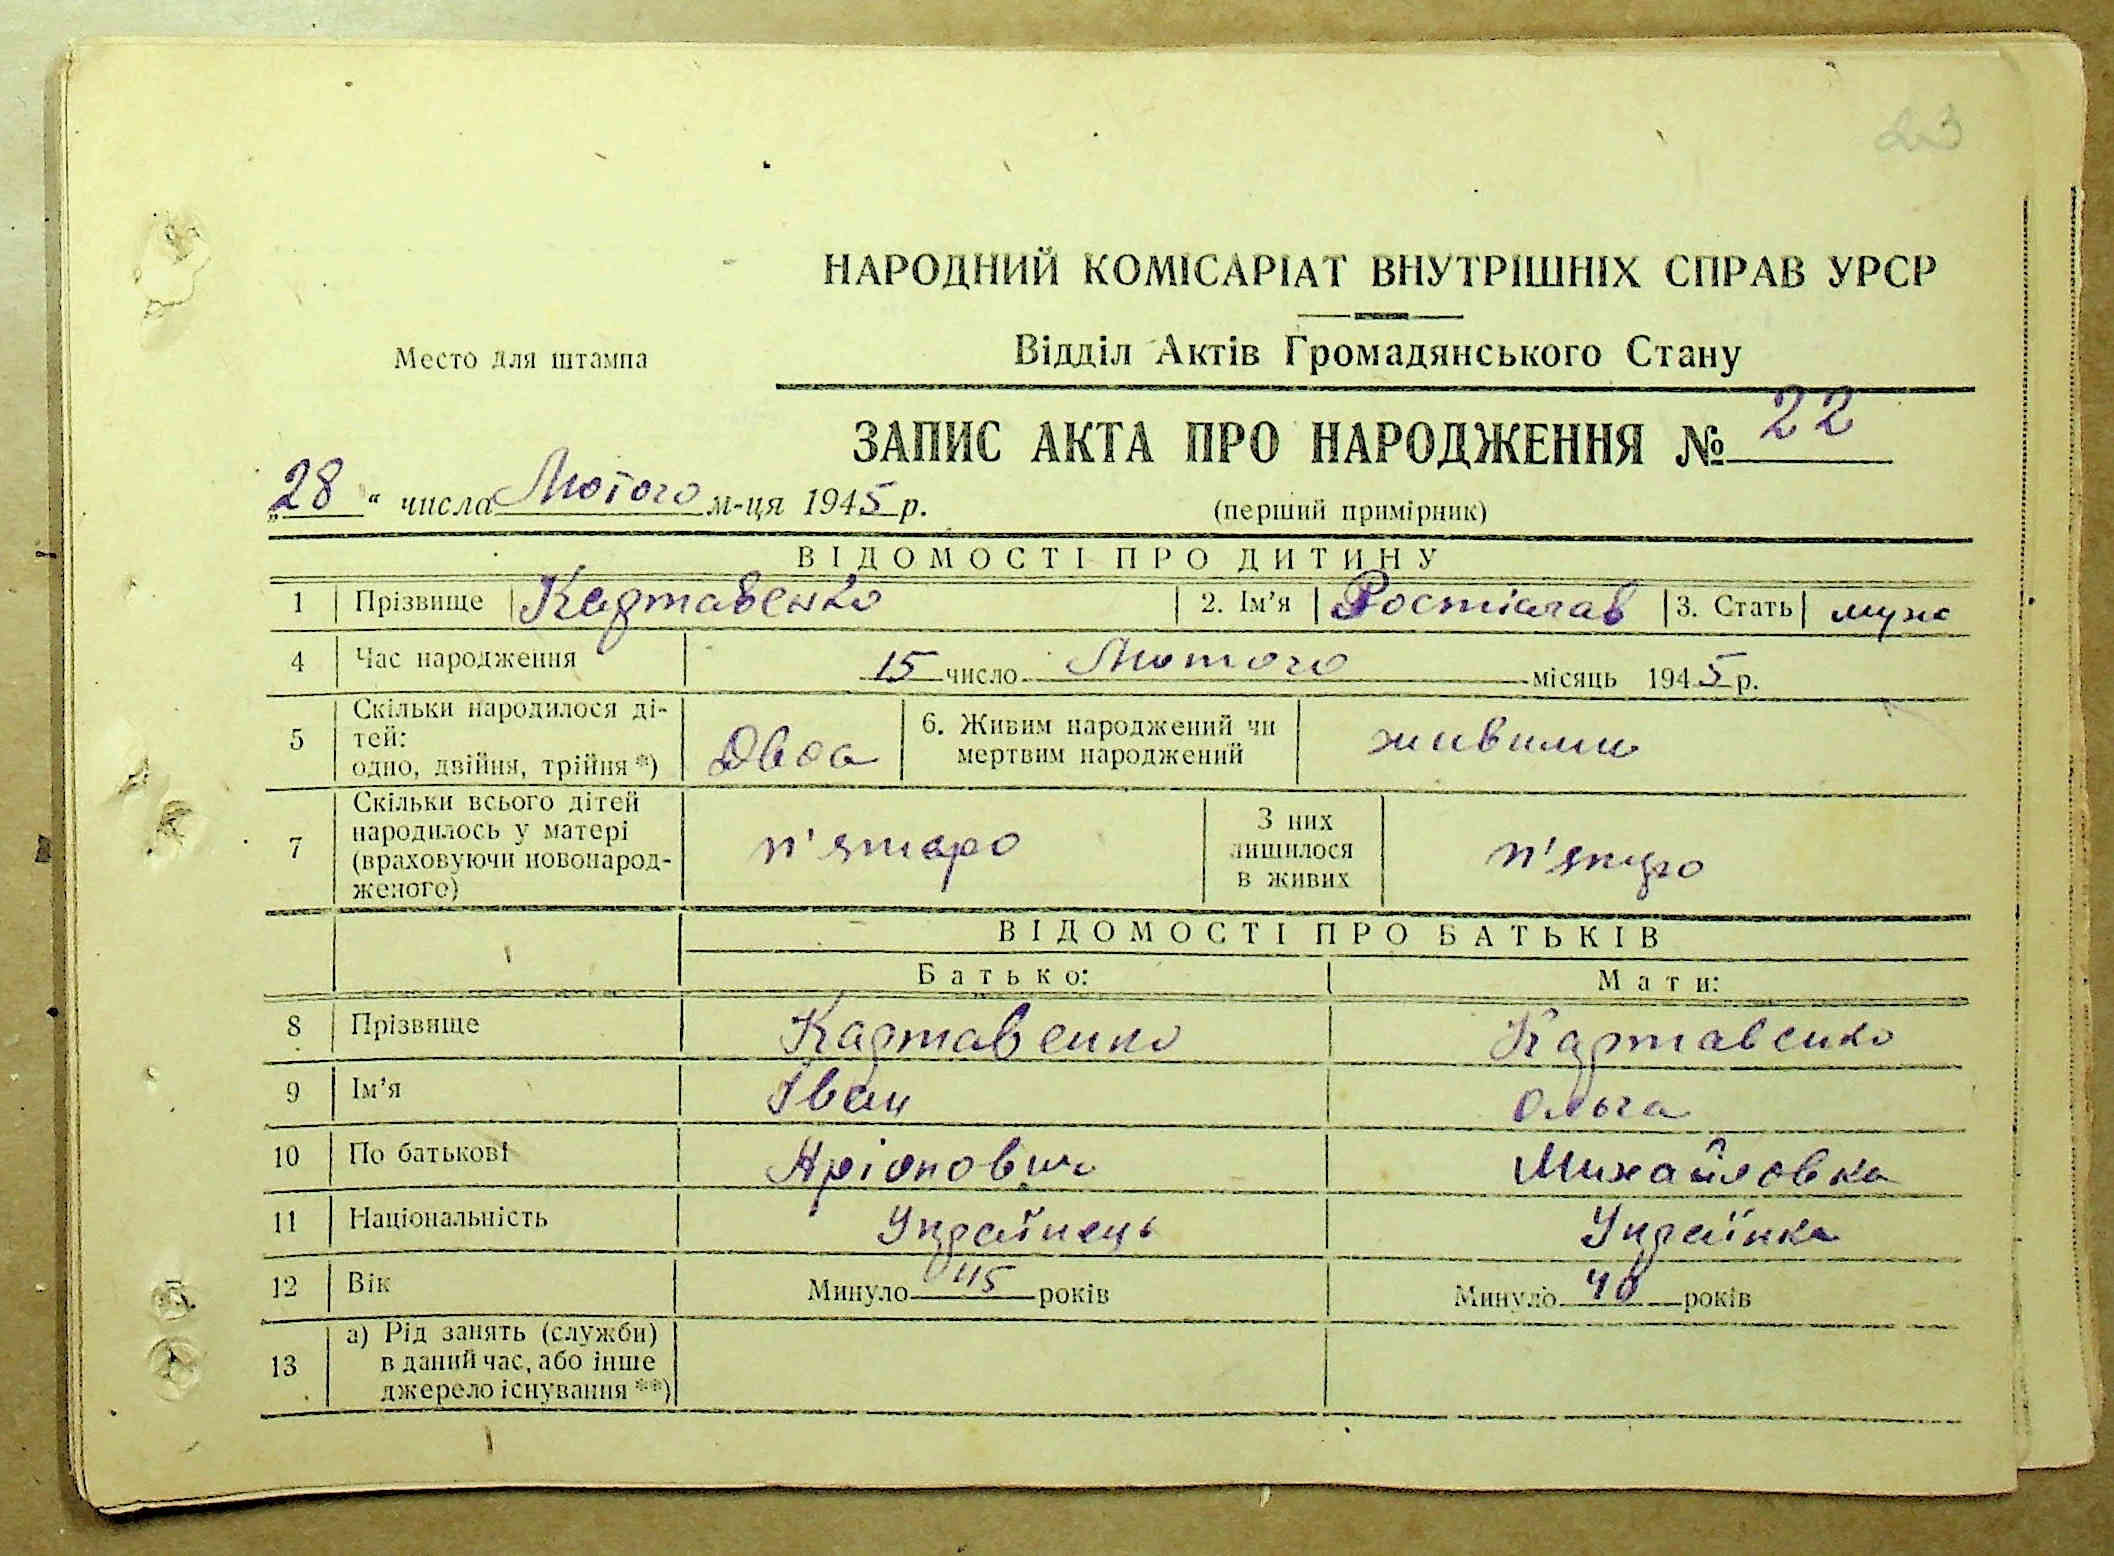 23
НАРОДНИЙ КОМІСАРІАТ ВНУТРІШНІХ СПРАВ УРСР
Место для штампа
Відділ Актів Громадянського Стану
ЗАПИС АКТА ПРО НАРОДЖЕННЯ № 22
„28“ числа Лютого м-ця 1945 р.
(перший примірник)
ВІДОМОСТІ ПРО ДИТИНУ
1 Прізвище Картавенко 2. Ім’я Ростіслав 3. Стать муж
4 Час народження 15 число Лютого місяць 1945 р.
5 Скільки народилося ді-
тей:
одно, двійня, трійня *) Двоа 6. Живим народжений чи
мертвим народжений живими
7 Скільки всього дітей
народилось у матері
(враховуючи новонарод-
женого) п'ятеро З них
лишилося
в живих п'ятеро
ВІДОМОСТІ ПРО БАТЬКІВ
Батько: Мати:
8 Прізвище Картавенко Картавенко
9 Ім’я Іван Ольга
10 По батькові Михайловка
11 Національність Українець Українка
12 Вік Минуло 45 років Минуло 40 років
13 а) Рід занять (служби)
в даний час, або інше
джерело існування **)